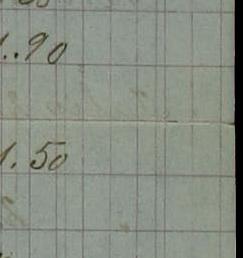 1.90
1.50